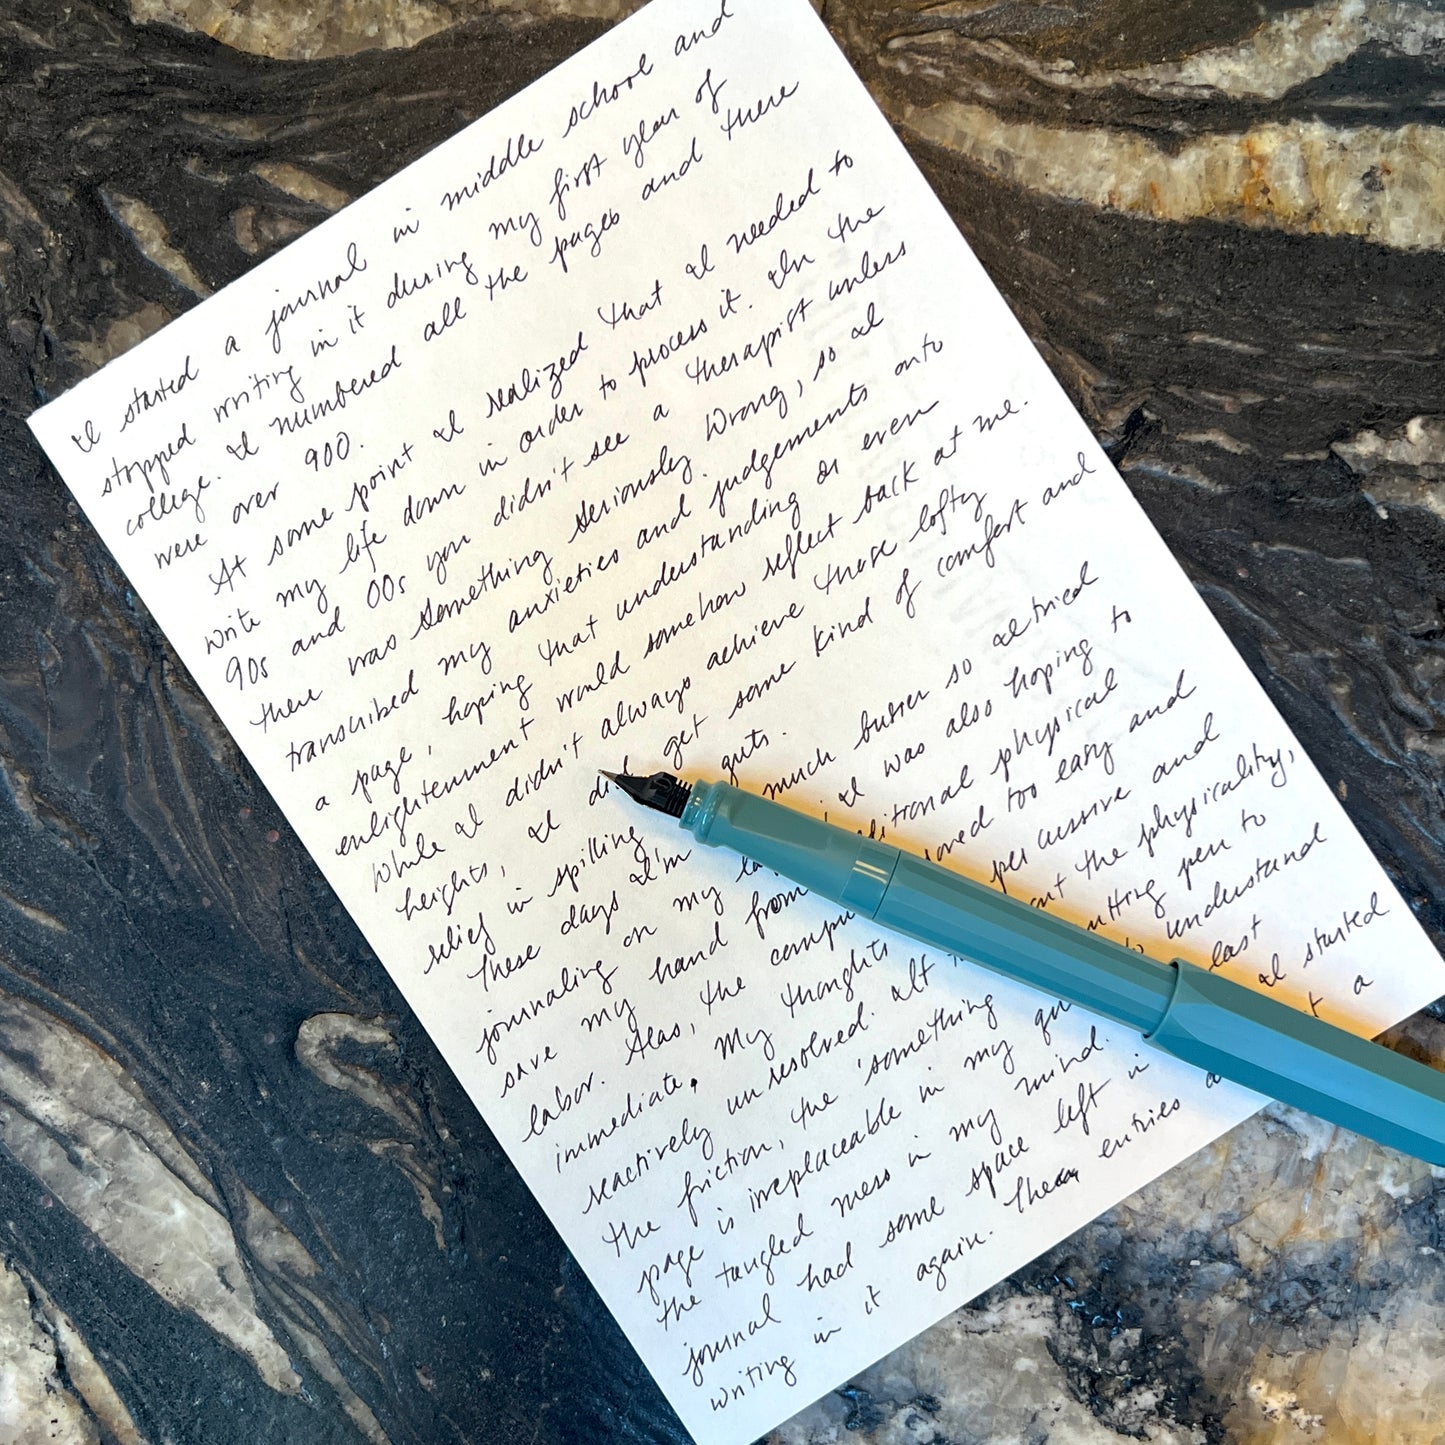 I started a journal in middle school and
stopped writing in it during my first year of
college. I numbered all the pages and there
were over 900.
At some point I realized that I needed to
write my life down in order to process it. In the
90s and 00s you didn't see a therapist unless
there was something seriously wrong, so I
transcribed my anxieties and judgements onto
a page, hoping that understanding or even
enlightenment would somehow reflect back at me.
While I didn't always achieve those lofty
heights, I did get some kind of comfort and
relief in spilling guts.
These days I'm much busier so I tried
journaling on my I was also hoping to
save my hand from physical
labor. Alas, the too easy and
immediate. My thoughts percussive and
reactively unresolved. the physicality,
the friction, the 'something pen to
page is irreplaceable in my understand
the tangled mess in my mind. last
journal had some space left in I started
writing in it again. The entries a